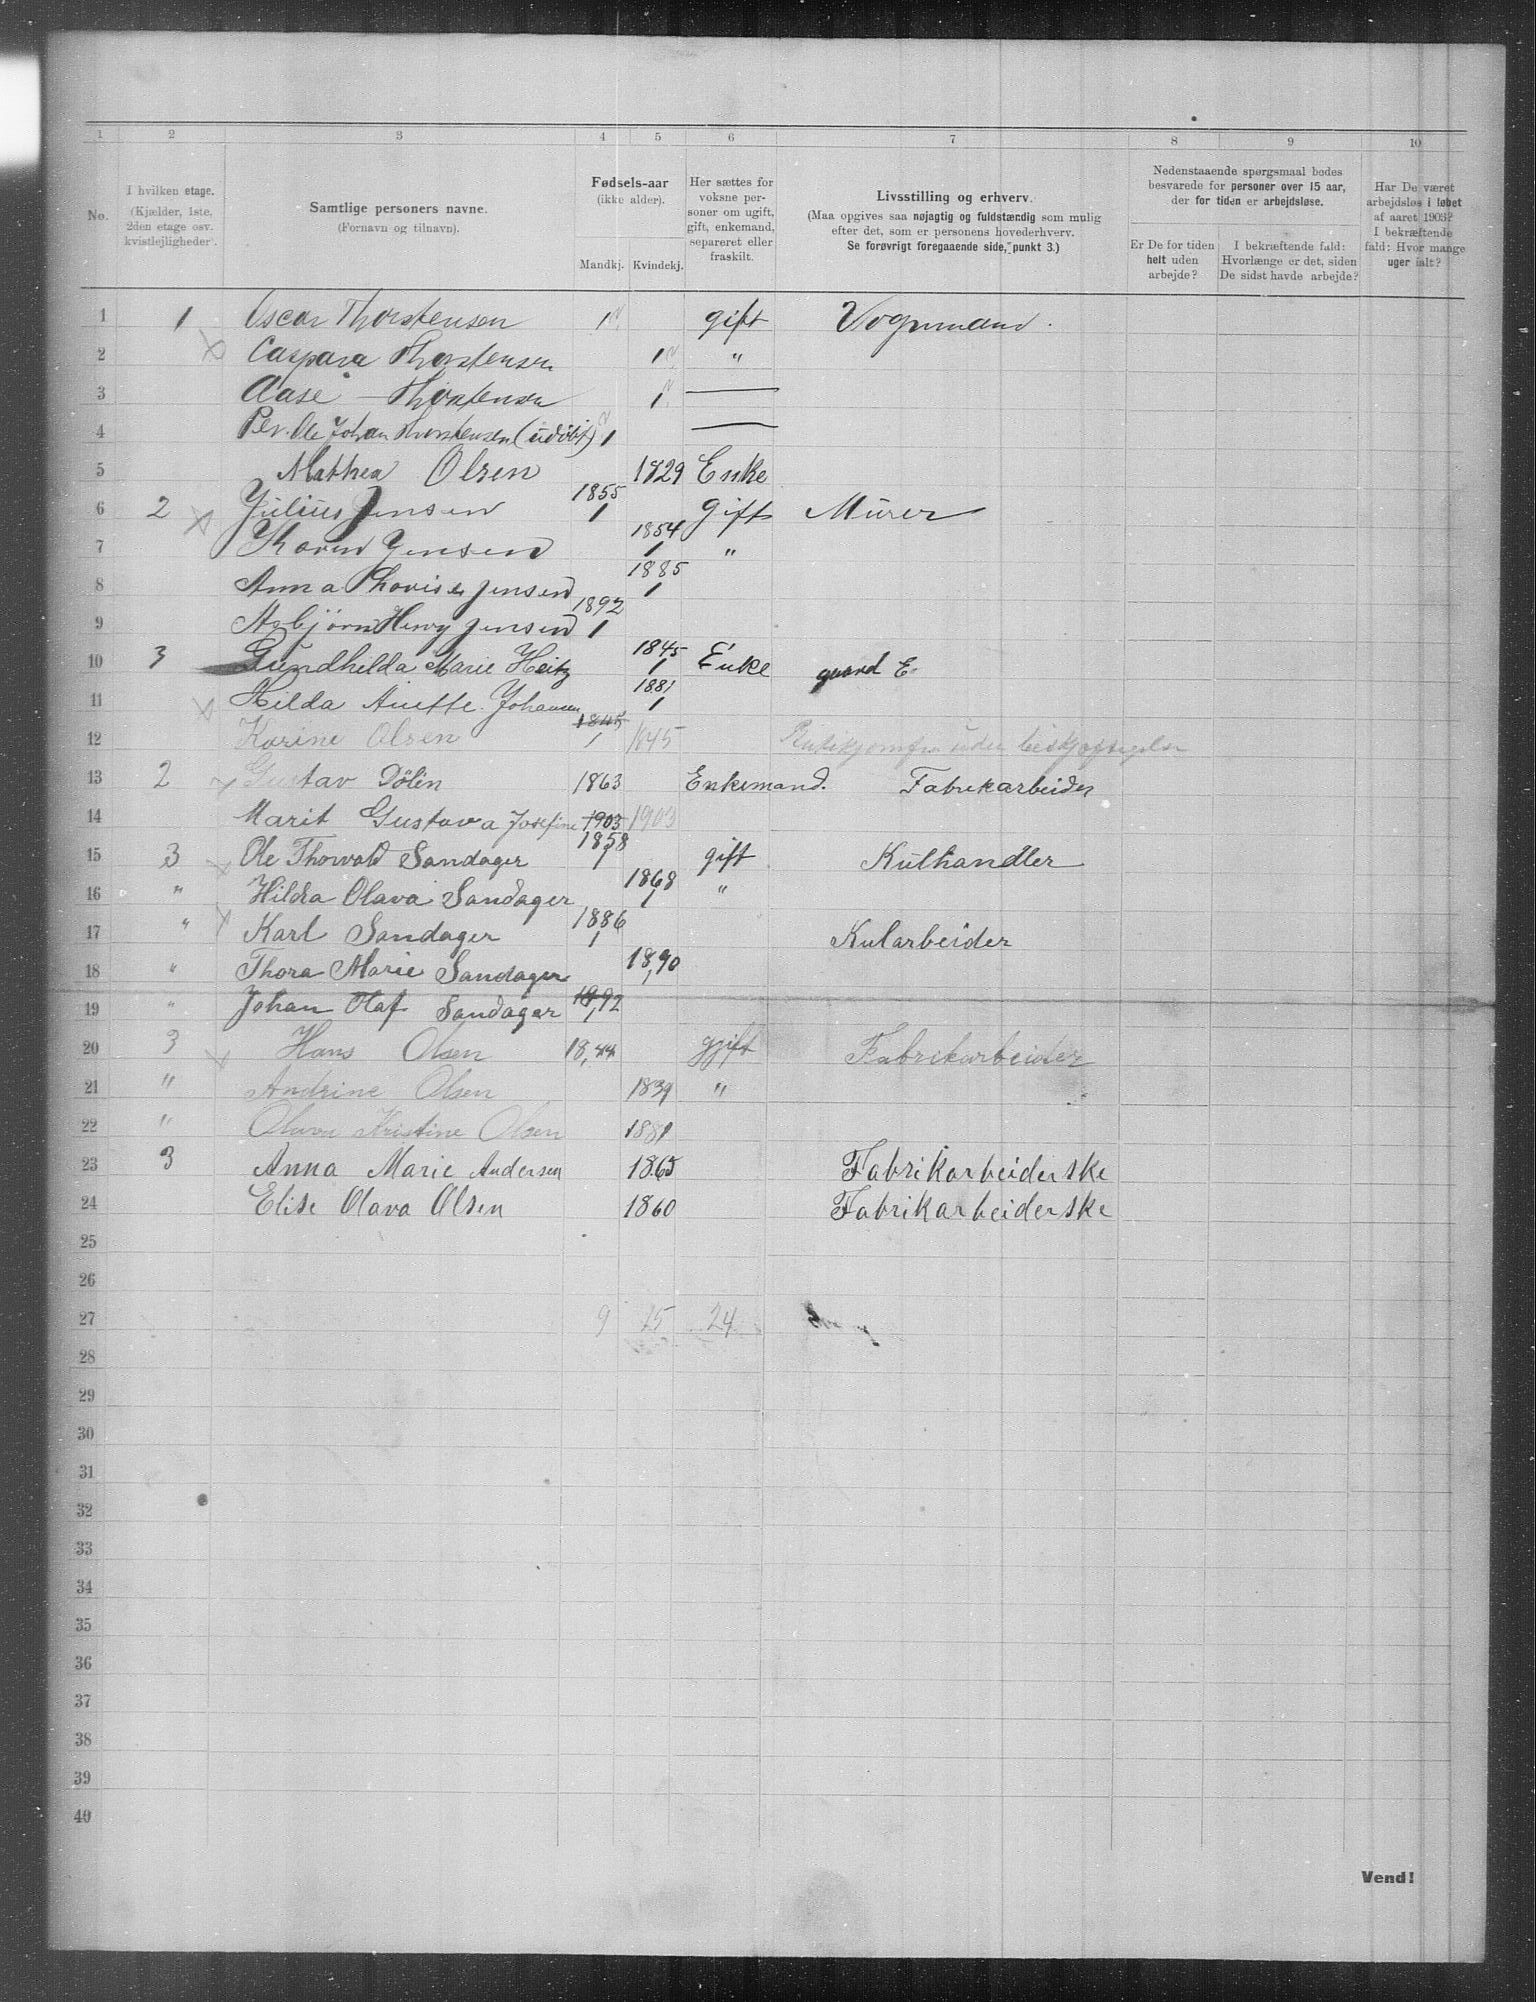 1 2 3 4 5 6 7 8 9 10
No.
I hvilken etage.
(Kjælder, 1ste,
2den etage osv.
kvistlejligheder).
Samtlige personers navne.
(Fornavn og tilnavn).
Fødsels-aar
(ikke alder).
Mandkj. Kvindekj.
Her sættes for
voksne per-
soner om ugift,
gift, enkemand,
separeret eller
fraskilt.
Livsstilling og erhverv.
(Maa opgives saa nøjagtig og fuldstændig som mulig
efter det, som er personens hovederhverv.
Se forøvrigt foregaaende side, punkt 3.)
Nedenstaaende spørgsmaal bedes
besvarede for personer over 15 aar,
der for tiden er arbejdsløse.
Er De for tiden
helt uden
arbejde?
I bekræftende fald:
Hvorlænge er det, siden
De sidst havde arbejde?
Har De været
arbejdsløs i løbet
af aaret 1903?
I bekræftende
fald: Hvor mange
uger ialt?
1 1 Oscar Thorstensen 1 gift Vognmand.
2 Caspara Thorstensen 1 "
3 Aase Thorstensen 1 —
4 Per. Ole Johan Thorstensen (udöbt) 1 —
5 Mathea Olsen 1829 Enke
6 2 Julius Jensen 1855 1 gift Murer
7 Karen Jensen 1854 1 "
8 Anna Lovise Jensen 1885 1
9 Asbjörn Henry Jensen 1892 1
10 3 Gundhilda Marie Heitz 1845 1 Enke
11 Hilda Anette Johansen 1881 1
12 Karine Olsen 1845 1 1845
13 2 Gustav Dölin 1863 Enkemand. Fabrikarbeider
14 Marit Gustava Josefine 1903 1903
15 3 Ole Thowald Sandager 1858 1 gift Kulhandler
16 " Hilda Olava Sandager 1868 1 "
17 " Karl Sandager 1886 1 Kularbeider
18 " Thora Marie Sandager 1890
19 " Johan Olaf Sandager 1892
20 3 Hans Olsen 1844 gjift Fabrikarbeider
21 " Andrine Olsen 1839 "
22 " Olava Kristine Olsen 1881
23 3 Anna Marie Andersen 1865 Fabrikarbeiderske
24 Elise Olava Olsen 1860 Fabrikarbeiderske
25
26
27 9 15 24
28
29
30
31
32
33
34
35
36
37
38
39
40
Vend!